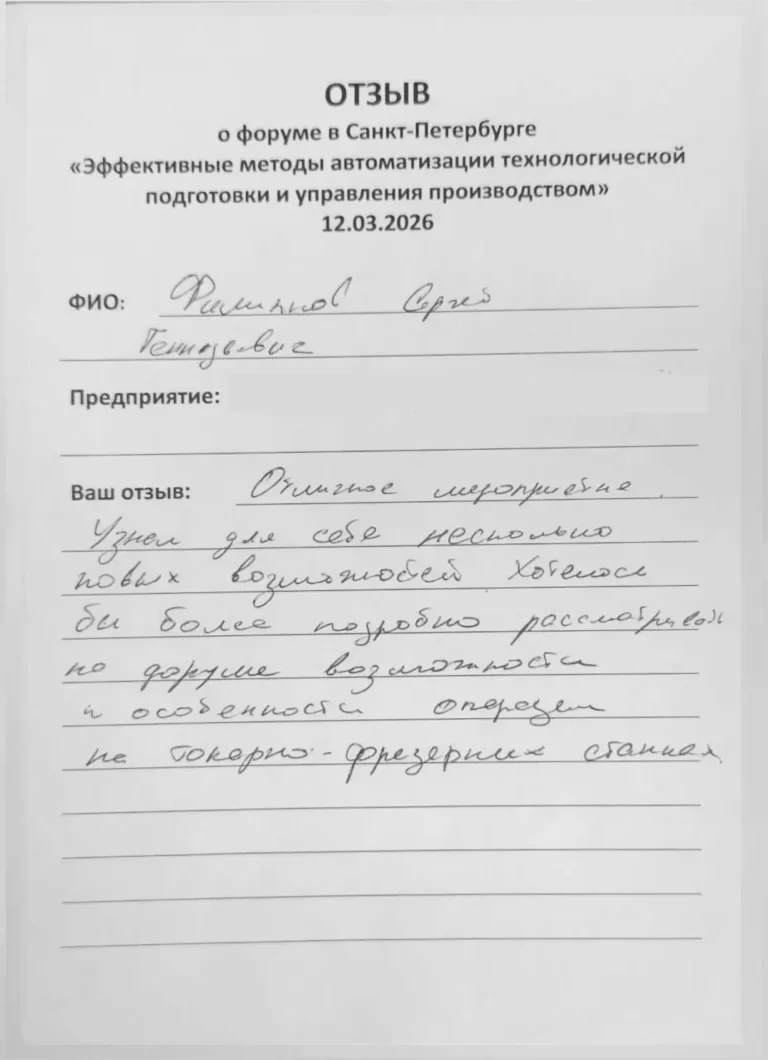 ОТЗЫВ
о форуме в Санкт-Петербурге
«Эффективные методы автоматизации технологической
подготовки и управления производством»
12.03.2026
ФИО: Филиппов Сергей
Геннадьевич
Предприятие:
Ваш отзыв: Отличное мероприятие.
Узнал для себя несколько
новых возможностей Хотелось
бы более подробно рассматривать
на форуме возможности
и особенности операций
на токарно-фрезерных станках